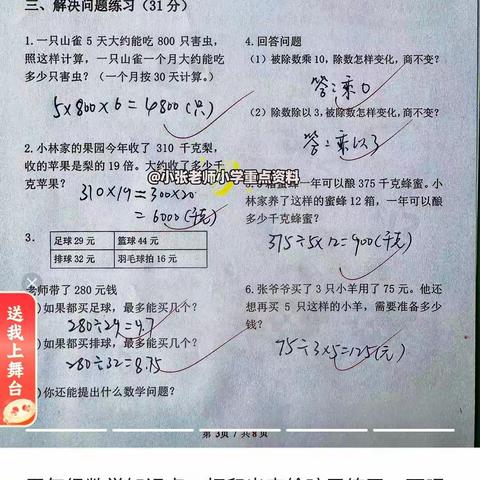 三、解决问题练习(31分)
1.一只山雀 5 天大约能吃 800 只害虫,
照这样计算,一只山雀一个月大约能吃
多少只害虫?(一个月按 30 天计算。)
5×800×6=4800(只)
2.小林家的果园今年收了 310 千克梨,
收的苹果是梨的 19 倍。大约收了多少千
克苹果?
310×19≈300×20
=6000(千克)
3.
足球 29 元 篮球 44 元
排球 32 元 羽毛球拍 16 元
老师带了 280 元钱
)如果都买足球,最多能买几个?
280÷29=9.7
)如果都买排球,最多能买几个?
280÷32=8.75
)你还能提出什么数学问题?
4.回答问题
(1)被除数乘 10,除数怎样变化,商不变?
答:乘0
(2)除数除以 3,被除数怎样变化,商不变?
答:乘以3
@小张老师小学重点资料
一年可以酿 375 千克蜂蜜。小
林家养了这样的蜜蜂 12 箱,一年可以酿
多少千克蜂蜜?
375÷5×12=900(千克)
6.张爷爷买了 3 只小羊用了 75 元。他还
想再买 5 只这样的小羊,需要准备多少
钱?
75÷3×5=125(元)
第 3页 / 共 8页
送我上舞台